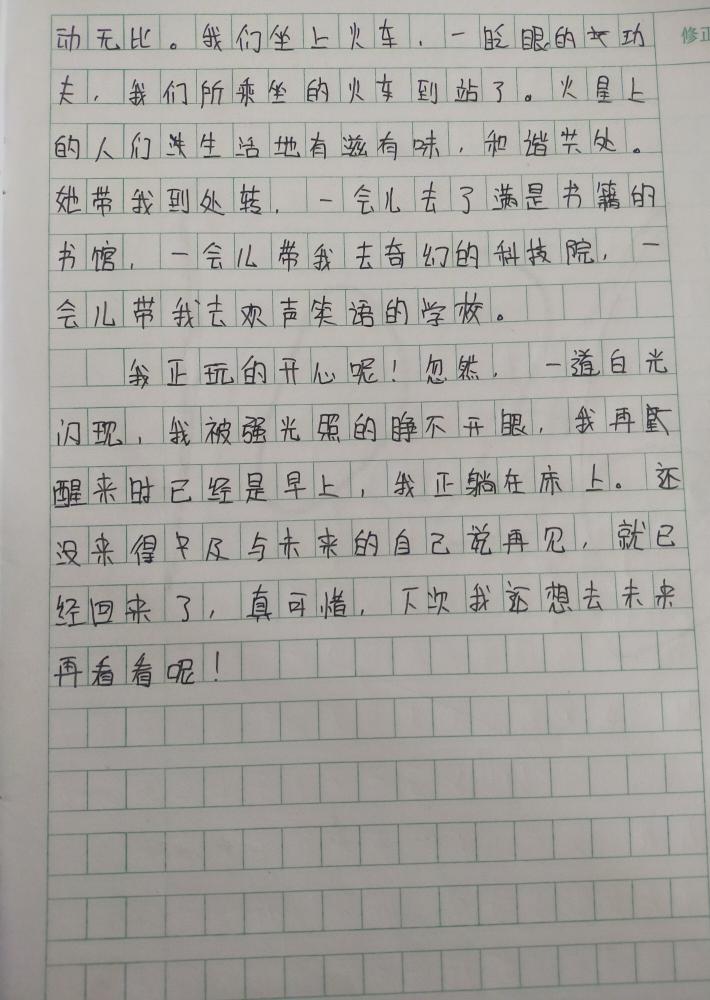 修正
动无比。我们坐上火车，一眨眼的功
夫，我们所乘坐的火车到站了。火星上
的人们生活地有滋有味，和谐共处。
她带我到处转，一会儿去了满是书籍的
书馆，一会儿带我去奇幻的科技院，一
会儿带我去欢声笑语的学校。
我正玩的开心呢！忽然，一道白光
闪现，我被强光照的睁不开眼，我再
醒来时已经是早上，我正躺在床上。还
没来得及与未来的自己说再见，就已
经回来了，真可惜，下次我还想去未来
再看看呢！